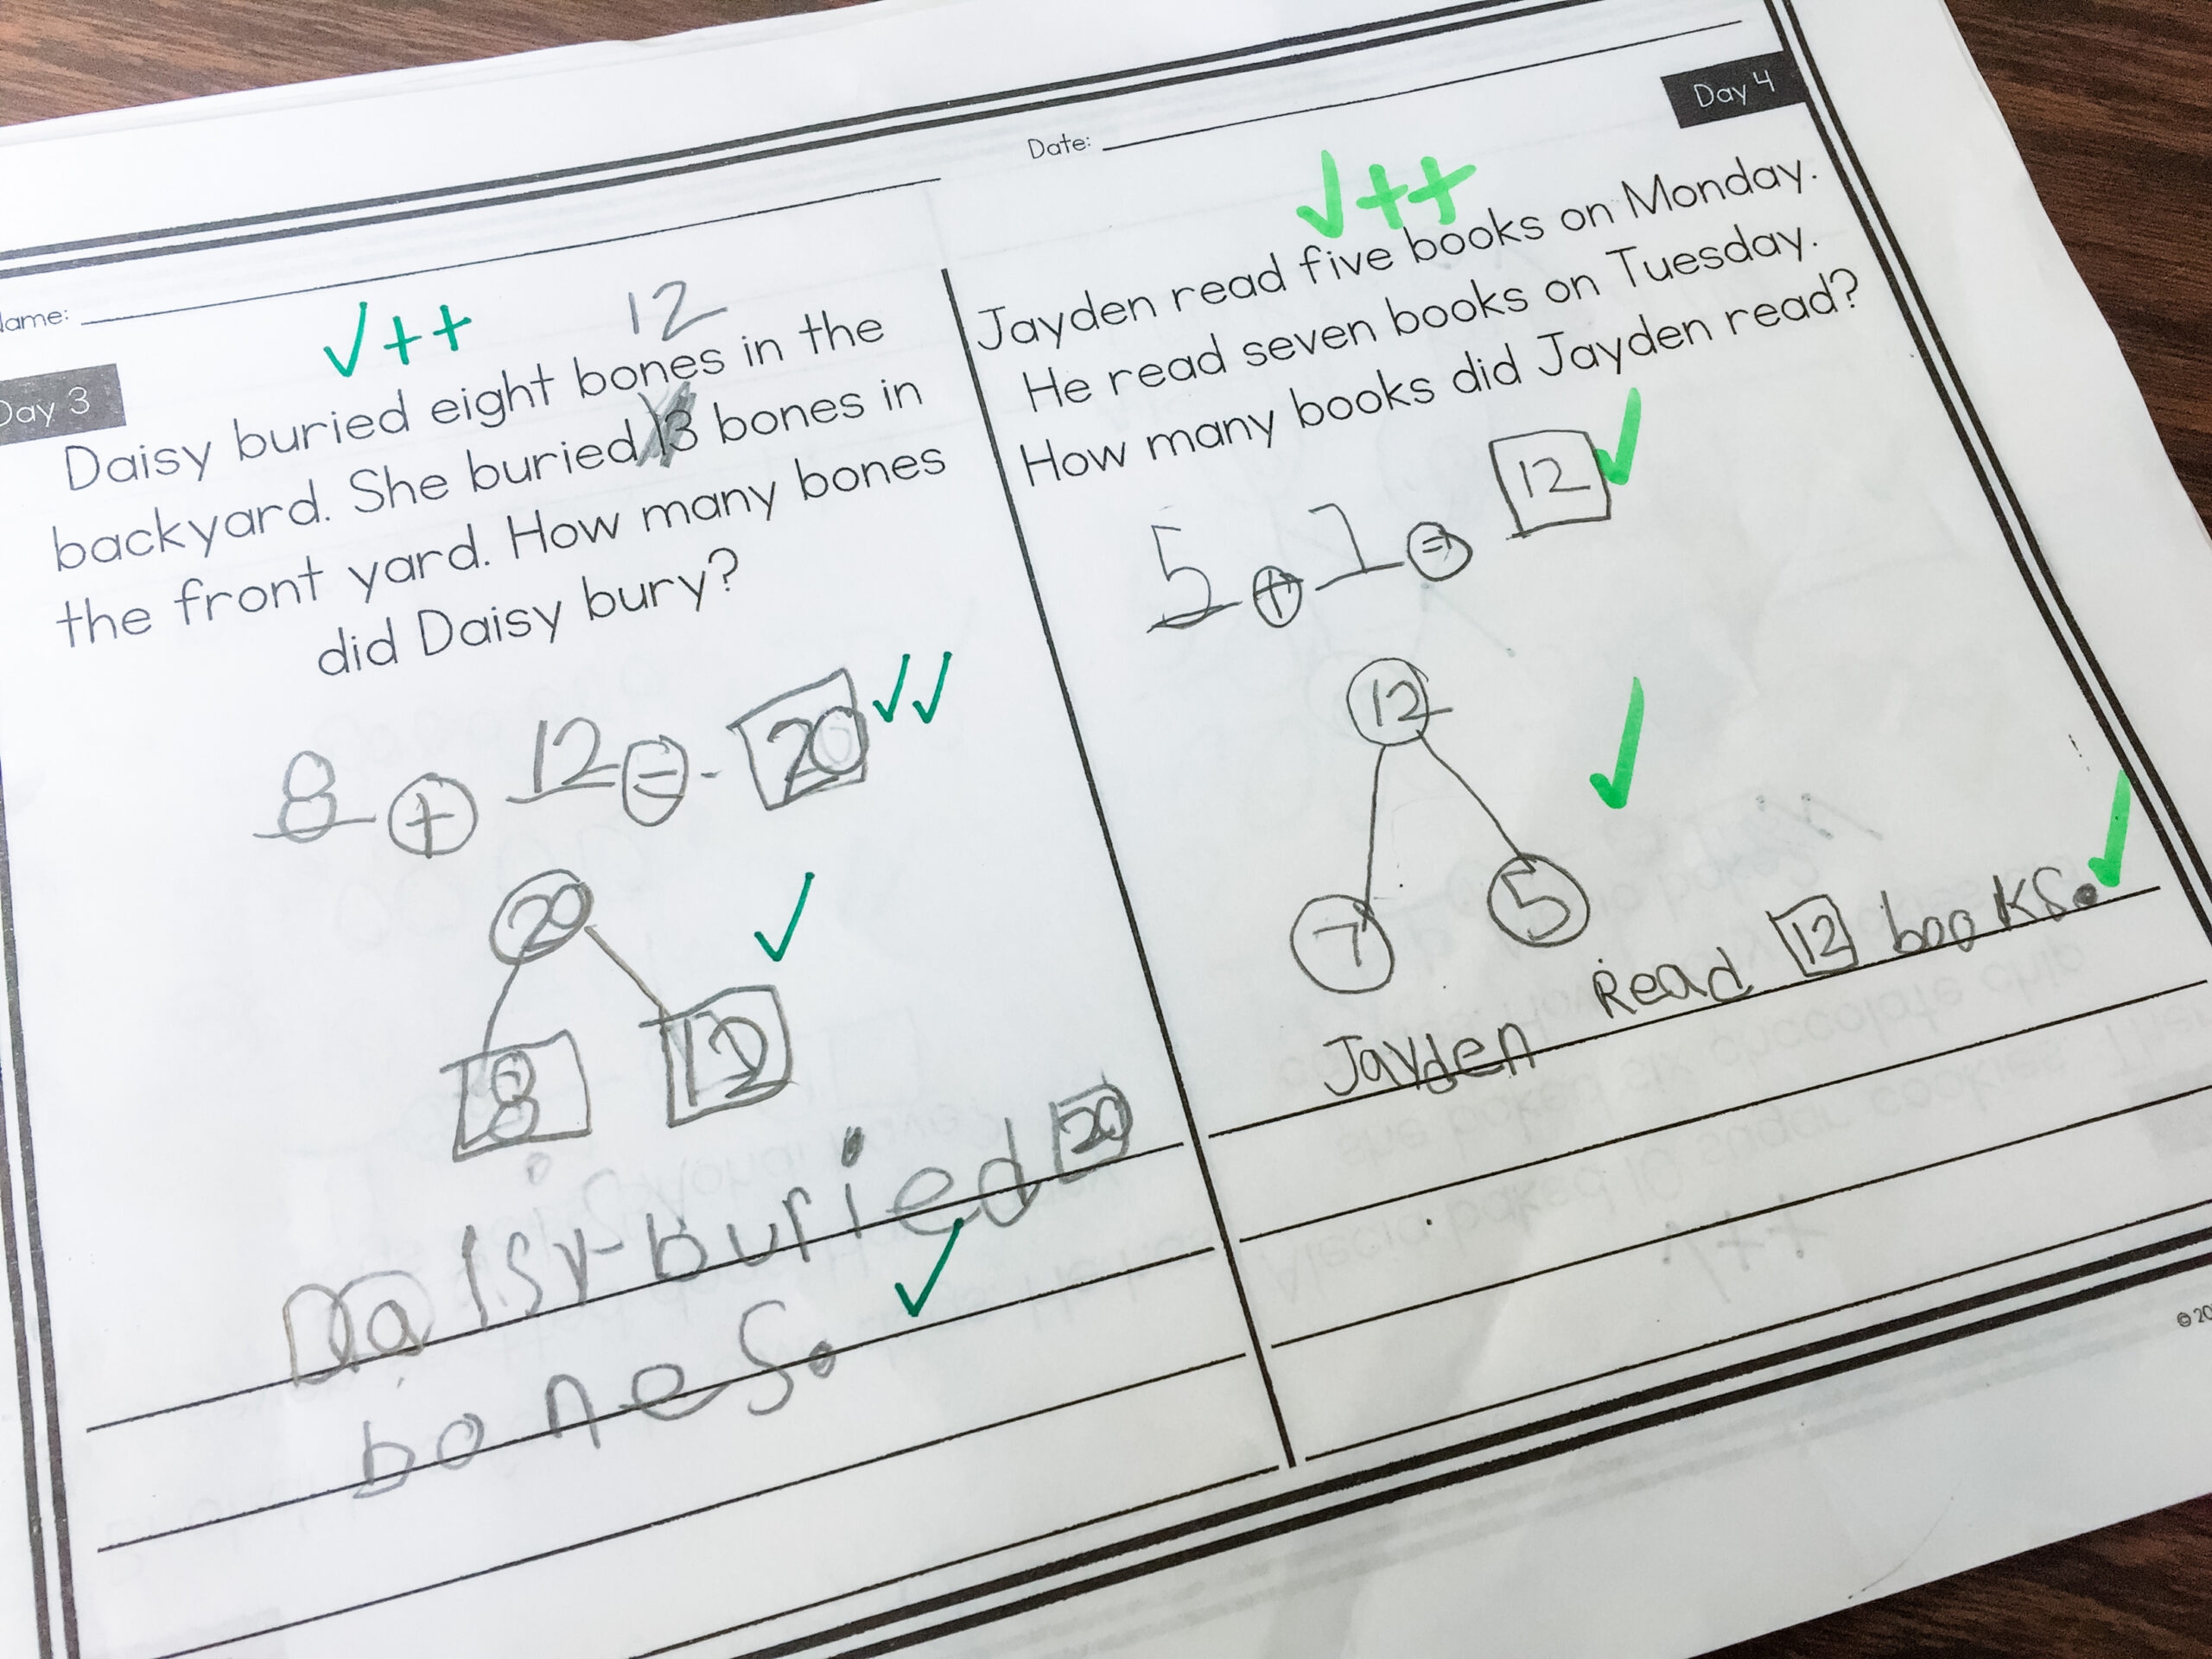 Day 3
12
Daisy buried eight bones in the
backyard. She buried 13 bones in
the front yard. How many bones
did Daisy bury?
8 + 12 = 20
20
8 12
Daisy buried 20
bones.
Date:
Day 4
Jayden read five books on Monday.
He read seven books on Tuesday.
How many books did Jayden read?
5 + 7 = 12
12
7 5
Jayden Read 12 books.